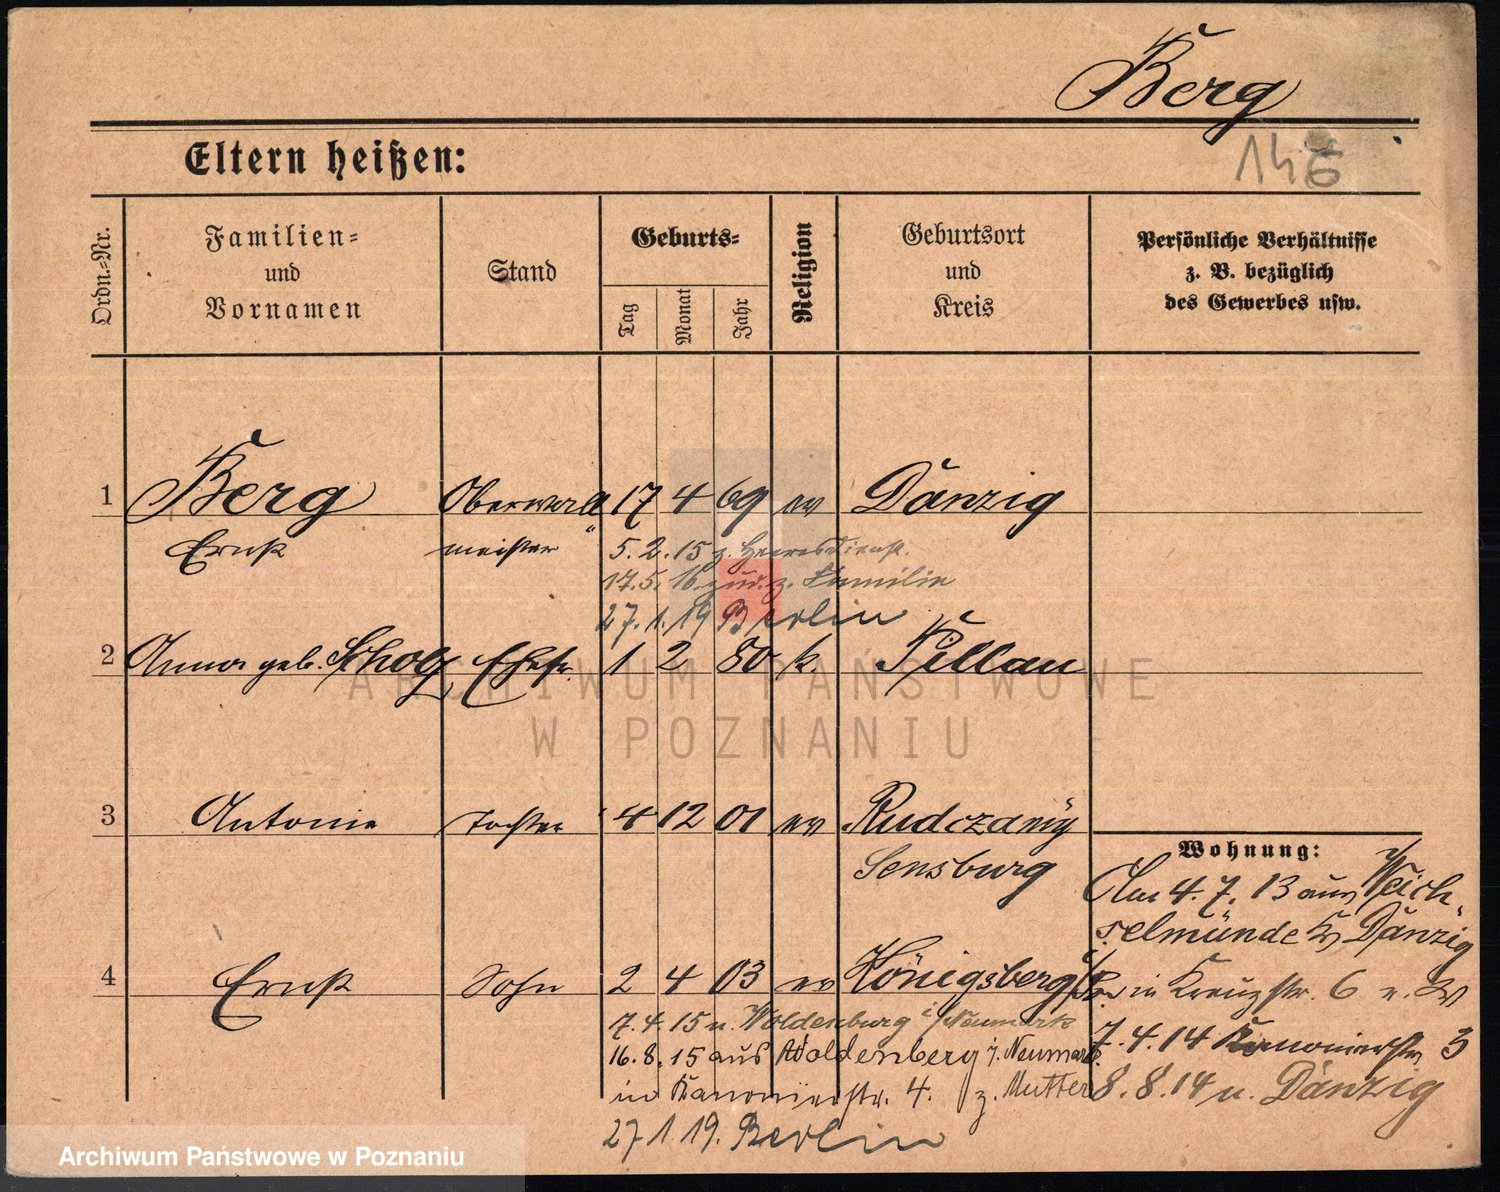 Berg
146
Eltern heißen:
Ordn.-Nr.
Familien- und Vornamen
Stand
Geburts-
Tag
Monat
Jahr
Religion
Geburtsort und Kreis
Persönliche Verhältnisse
z. B. bezüglich
des Gewerbes usw.
1 Berg Oberwall 17 4 69 ev Danzig
Ernst meister 5.2.15 z. Heeresdienst.
17.5.16 zur. z. Familie
27.1.19 Berlin
2 Anna geb. Scholz Ehefr. 1 2 80 k. Pillau
3 Antonie Tochter 4 12 01 ev Rudczanny
Sensburg
Wohnung:
Am 4.7.13 aus Weich-
selmünde Kr Danzig
4 Ernst Sohn 2 4 03 ev Königsberg i/Pr.
in Kreuzstr. 6 v. W
7.4.15 n. Woldenburg i/Neumark
7.4.14 Kanonierstr 3
16.8.15 aus Woldenberg i. Neumark
in Kanonierstr. 4. z. Mutter
8.8.14 n. Danzig
27 1 19. Berlin
ARCHIWUM PAŃSTWOWE
W POZNANIU
Archiwum Państwowe w Poznaniu